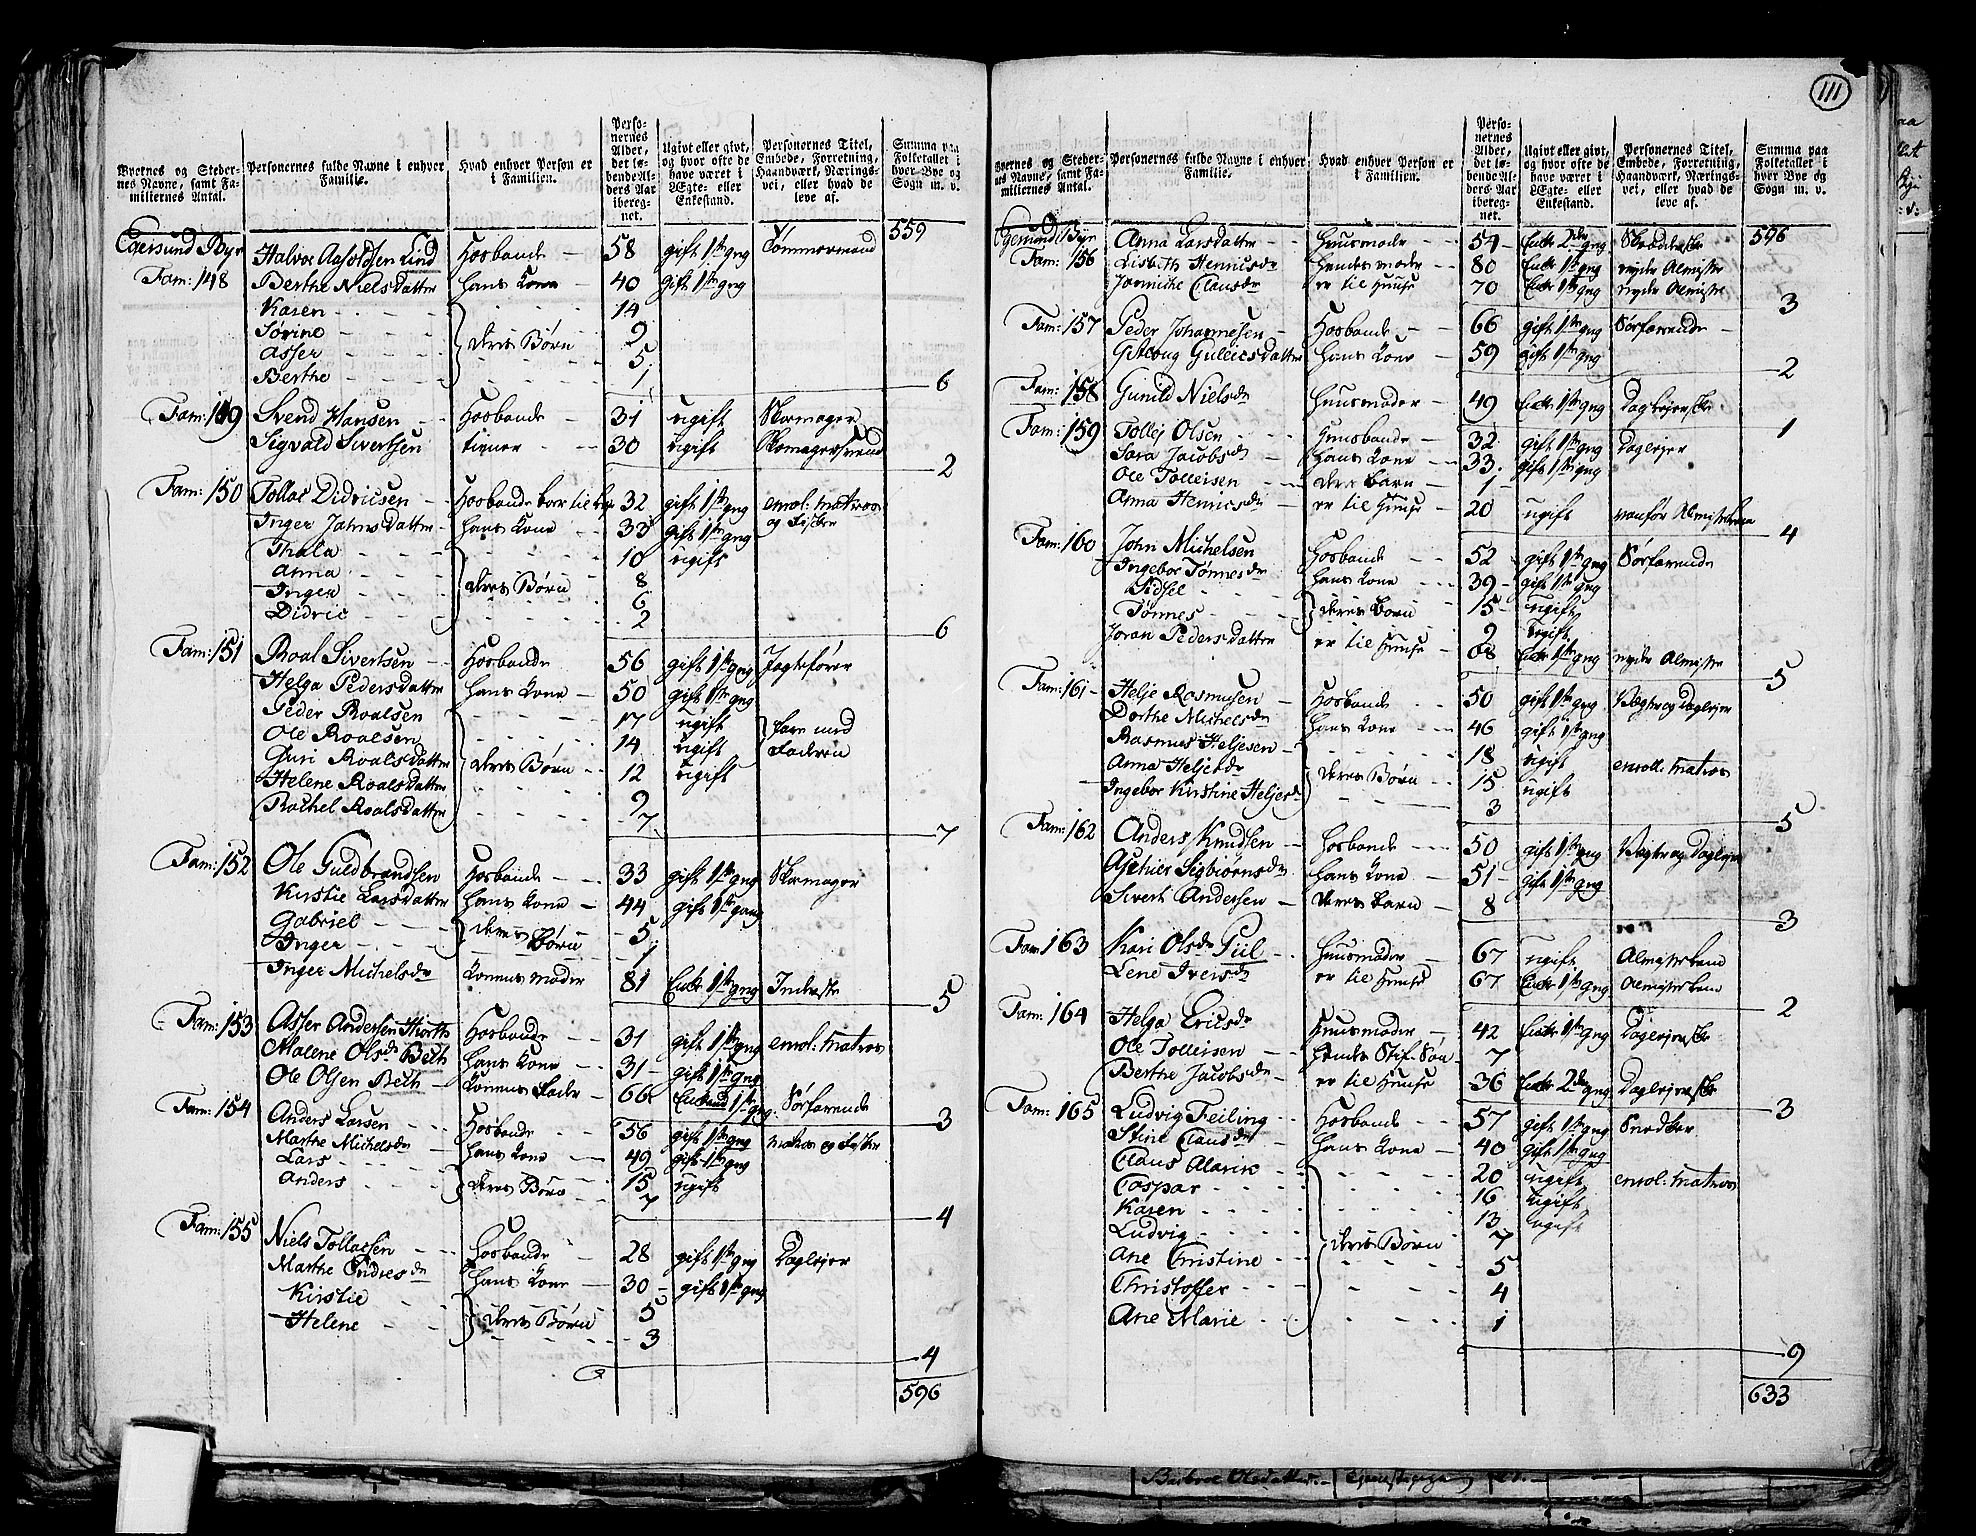 111
Byernes og Steder-
nes Navne, samt Fa-
miliernes Antal.
Personernes fulde Navne i enhver
Familie.
Hvad enhver Person er
i Familien.
Perso-
nernes
Alder,
det lø-
bende Al-
ders Aar
ibereg-
net.
Ugivt eller givt,
og hvor ofte de
have været i
Ægte- eller
Enkestand.
Personernes Titel,
Embede, Forretning,
Haandværk, Nærings-
vei, eller hvad de
leve af.
Summa paa
Folketallet i
hver Bye og
Sogn m. v.
Egersund Bye 559
Fam: 148 Halvor Aasoldsen Lind Hosbonde 58 gift 1ste gng Tømmermand
Berthe Nielsdatter hans Kone 40 gift 1ste gng
Karen 14
Sørine deres Børn 9
Asser 5
Berthe 1
6
Fam: 149 Svend Hansen Hosbonde 31 ugift Skomager
Sigvald Sivertsen tiener 30 ugift Skomagersvend
2
Fam: 150 Tollac Didricsen Hosbonde boer til 32 gift 1ste gng enrol: matros
Inger Jahnsdatter hans Kone 33 gift 1ste gng og Fisker
Thala 10 ugift
Anna deres Børn 8
Inger 6
Didric 2
6
Fam: 151 Roal Sivertsen Hosbonde 56 gift 1ste gng Jagtefører
Helga Pedersdatter hans Kone 50 gift 1ste gng
Peder Roalsen 17 ugift fare med
Ole Roalsen 14 ugift Faderen
Guri Roalsdatter deres Børn 12 ugift
Helene Roalsdatter 9
Rachel Roalsdatter 7
7
Fam: 152 Ole Guldbrandsen Hosbonde 33 gift 1ste gng Skomager
Kirstie Larsdatter hans Kone 44 gift 1ste gang
Gabriel deres Børn 5
Inger 1
Inger Michelsdr Konens moder 81 Enke 1ste gng Inderste
5
Fam: 153 Asser Andersen Hiorth Hosbonde 31 gift 1ste gng enrol: matros
Malene Olsdr Bech hans Kone 31 gift 1ste gng
Ole Olsen Bech Konens Fader 66 Enkemd 1ste gng Sørfarende
3
Fam: 154 Anders Larsen Hosbonde 56 gift 1ste gng matros og Fisker
Marthe Michelsdr hans Kone 49 gift 1ste gng
Lars deres Børn 15 ugift
Anders 7
4
Fam: 155 Niels Tollacsen Hosbonde 28 gift 1ste gng Dagleier
Marthe Endresdr hans Kone 30 gift 1ste gng
Kirstie deres Børn 5
Helene 3
4
596
Byernes og Steder-
nes Navne, samt Fa-
miliernes Antal.
Personernes fulde Navne i enhver
Familie.
Hvad enhver Person er
i Familien.
Perso-
nernes
Alder,
det lø-
bende Al-
ders Aar
ibereg-
net.
Ugivt eller givt,
og hvor ofte de
have været i
Ægte- eller
Enkestand.
Personernes Titel,
Embede, Forretning,
Haandværk, Nærings-
vei, eller hvad de
leve af.
Summa paa
Folketallet i
hver Bye og
Sogn m. v.
Egersund Bye Anna Larsdatter Huusmoder 54 Enke 2de gng Skrædderske 596
Fam: 156 Lisbeth Henricsdr hendes moder 80 Enke 1ste gng nyder Almisse
Jannicke Clausdr er til Huuse 70 Enke 1ste gng nyder Almisse
3
Fam: 157 Peder Johannesen Hosbonde 66 gift 1ste gng Sørfarende
Gullicsdatter hans Kone 59 gift 1ste gng
2
Fam: 158 Gunild Nielsdr Huusmoder 49 Enke 1ste gng Dagleierske
1
Fam: 159 Tollej Olsen Huusbonde 32 gift 1ste gng Dagleier
Sara Jacobsdr hans Kone 33 gift 1ste gng
Ole Tolleisen deres Barn 1
Anna Henricsdr er til Huuse 20 ugift vanfør
4
Fam: 160 John Michelsen Hosbonde 52 gift 1ste gng Sørfarende
Ingebor Tønnesdr hans Kone 39 gift 1ste gng
Sidsel deres Børn 15 ugift
Tønnes 9 ugift
Joran Pedersdatter er til Huuse 68 Enke 1ste gng nyder Almisse
5
Fam: 161 Helje Rasmusen Hosbonde 50 gift 1ste gng Vægter og Dagleier
Dorthe Michelsdr hans Kone 46 gift 1ste gng
Rasmus Heljesen 18 ugift enroll: matros
Anna Heljesdr deres Børn 15 ugift
Ingebor Kirstine Heljesdr 3
5
Fam: 162 Anders Knudsen Hosbonde 50 gift 1ste gng Vægter og Dagleier
Sigbiørnsdr hans Kone 51 gift 1ste gng
Sivert Andersen deres Barn 8
3
Fam: 163 Kari Olsdr Piil Huusmoder 67 ugift Almisselem
Lene Iversdr er til Huuse 67 Enke 1ste gng Almisselem
2
Fam: 164 Helga Ericsdr Huusmoder 42 Enke 1ste gng Dagleierske
Ole Tolleisen hendes Stif-Søn 7
Berthe Jacobsdr er til Huuse 36 Enke 2de gng Dagleierske
3
Fam: 165 Ludvig Feiling Hosbonde 57 gift 1ste gng Snedker
Stine Clausdr hans Kone 40 gift 1ste gng
Claus Alarik 20 ugift enrol: matros
Caspar 16 ugift
Karen 13 ugift
Ludvig deres Børn 7
Ane Christine 5
Christoffer 4
Ane Marie 1
9
633